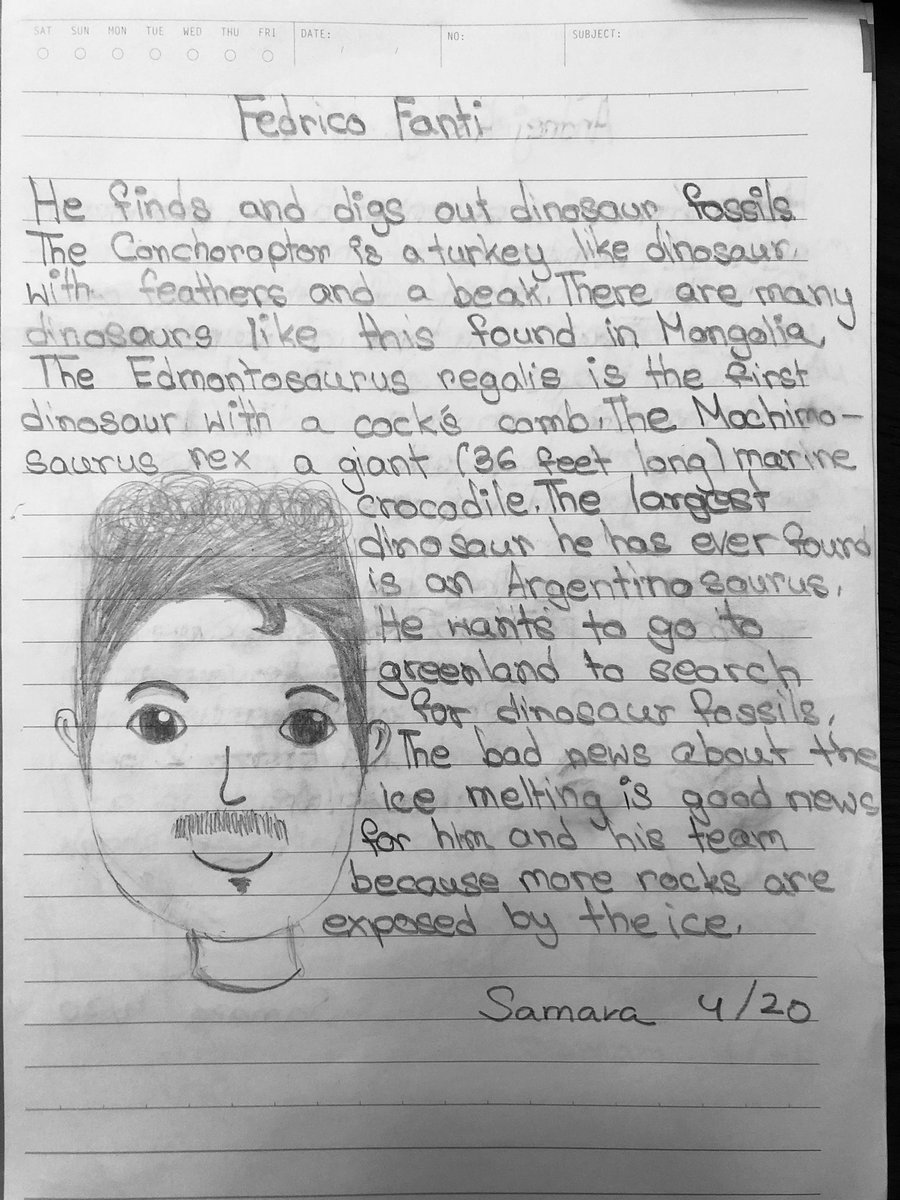 SAT SUN MON TUE WED THU FRI DATE: / / NO: SUBJECT:
Fedrico Fanti
He finds and digs out dinosaur fossils
The Conchoroptor is a turkey like dinosaur.
with feathers and a beak. There are many
dinosaurs like this found in Mongolia,
The Edmontosaurus regalis is the first
dinosaur with a cock's comb. The Machimo-
saurus rex a giant (36 feet long) marine
crocodile. The largest
dinosaur he has ever found
is an Argentinosaurus.
He wants to go to
greenland to search
for dinosaur fossils.
The bad news about the
ice melting is good news
for him and his team
because more rocks are
exposed by the ice.
Samara 4/20